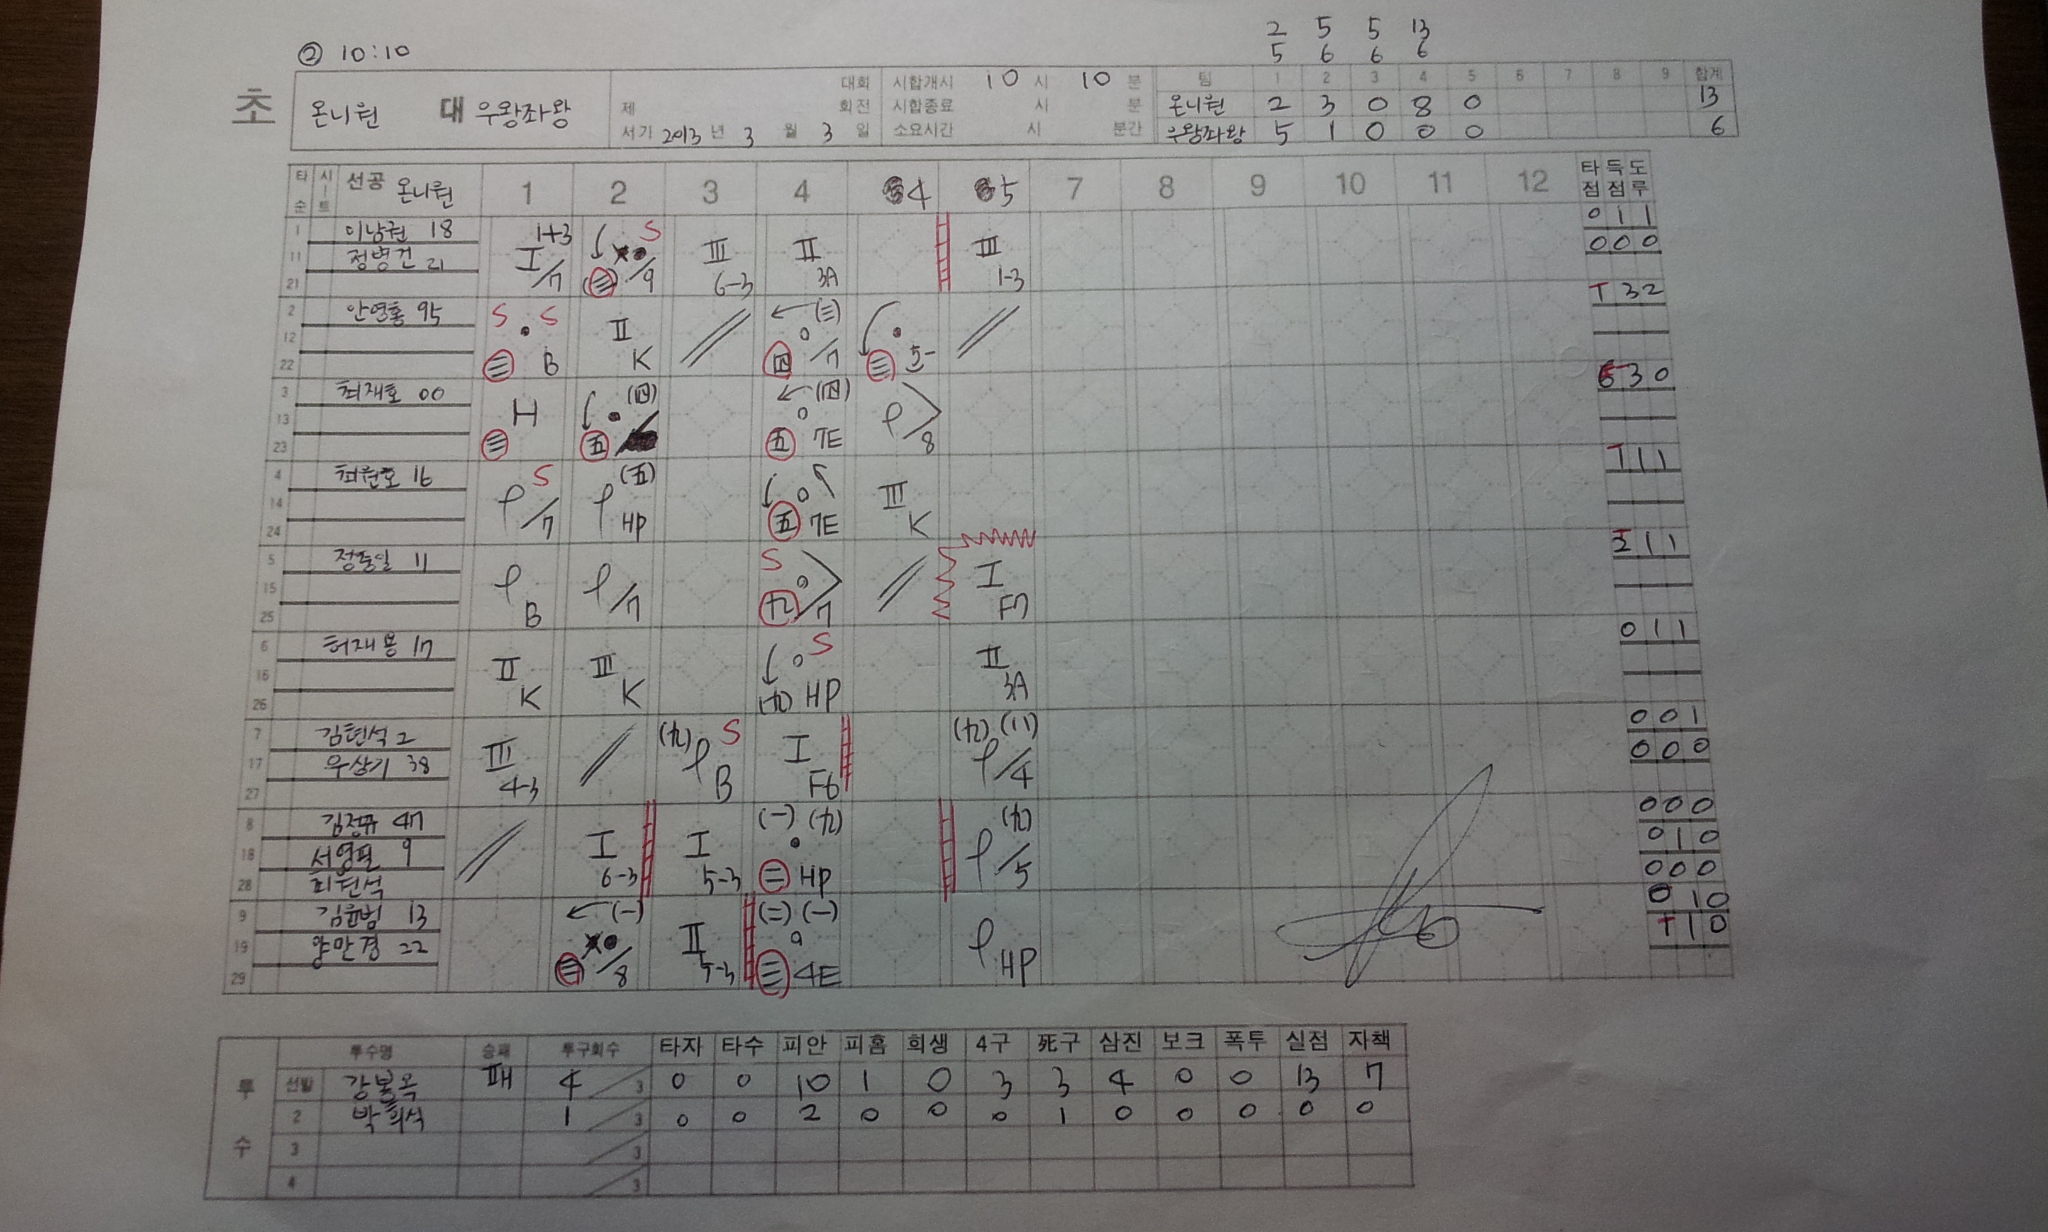 ② 10:10
2 5 5 13
5 6 6 6
초
온니원 대 우왕좌왕
대회
제 회전
서기 2013 년 3 월 3 일
시합개시 10 시 10 분
시합종료 시 분
소요시간 시 분간
팀 1 2 3 4 5 6 7 8 9 합계
온니원 2 3 0 8 0 13
우왕좌왕 5 1 0 0 0 6
타순 시트 선공 온니원 1 2 3 4 4 5 7 8 9 10 11 12 타점 득점 도루
1 이남권 18 I 1+3 /7 S 三 /9 III 6-3 II 3A III 1-3 0 1 1
11 정병건 21 0 0 0
21
2 안영홍 95 S S 三 B II K (三) 四 /7 三 5- T 3 2
12
22
3 최재호 00 H 三 (四) 五 (四) 五 7E /8 3 0
13
23
4 최원호 16 S /7 (五) HP 五 7E III K T 1 1
14
24
5 정동일 11 B /7 S /7 I F7 1 1
15
25
6 허재봉 17 II K III K S HP II 3A 0 1 1
16
26
7 김현석 2 III 4-3 S B I F6 /4 0 0 1
17 우상기 38 0 0 0
27
8 김정규 47 I 6-3 I 5-3 (一) 二 HP /5 0 0 0
18 서영필 9 0 1 0
28 최현석 0 0 0
9 김윤범 13 (一) 三 /8 II 5-3 (二) (一) 三 4E HP 0 1 0
19 양만경 22 T 1 0
29
투수 투수명 승패 투구회수 타자 타수 피안 피홈 희생 4구 死구 삼진 보크 폭투 실점 자책
선발 강봉옥 패 4 /3 0 0 10 1 0 3 3 4 0 0 13 7
2 박희석 1 /3 0 0 2 0 0 0 1 0 0 0 0 0
3 /3
4 /3